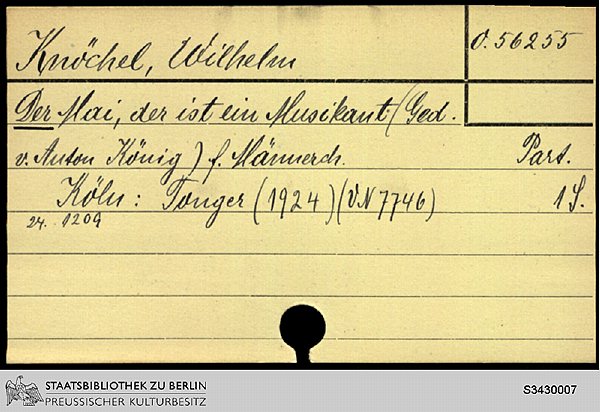 Knöchel, Wilhelm
O. 56255
Der Mai, der ist ein Musikant (Ged.
v. Anton König) f. Männerch. Part.
Köln: Tonger (1924) (VN 7746) 1 S.
24. 1209
STAATSBIBLIOTHEK ZU BERLIN
PREUSSISCHER KULTURBESITZ
S3430007